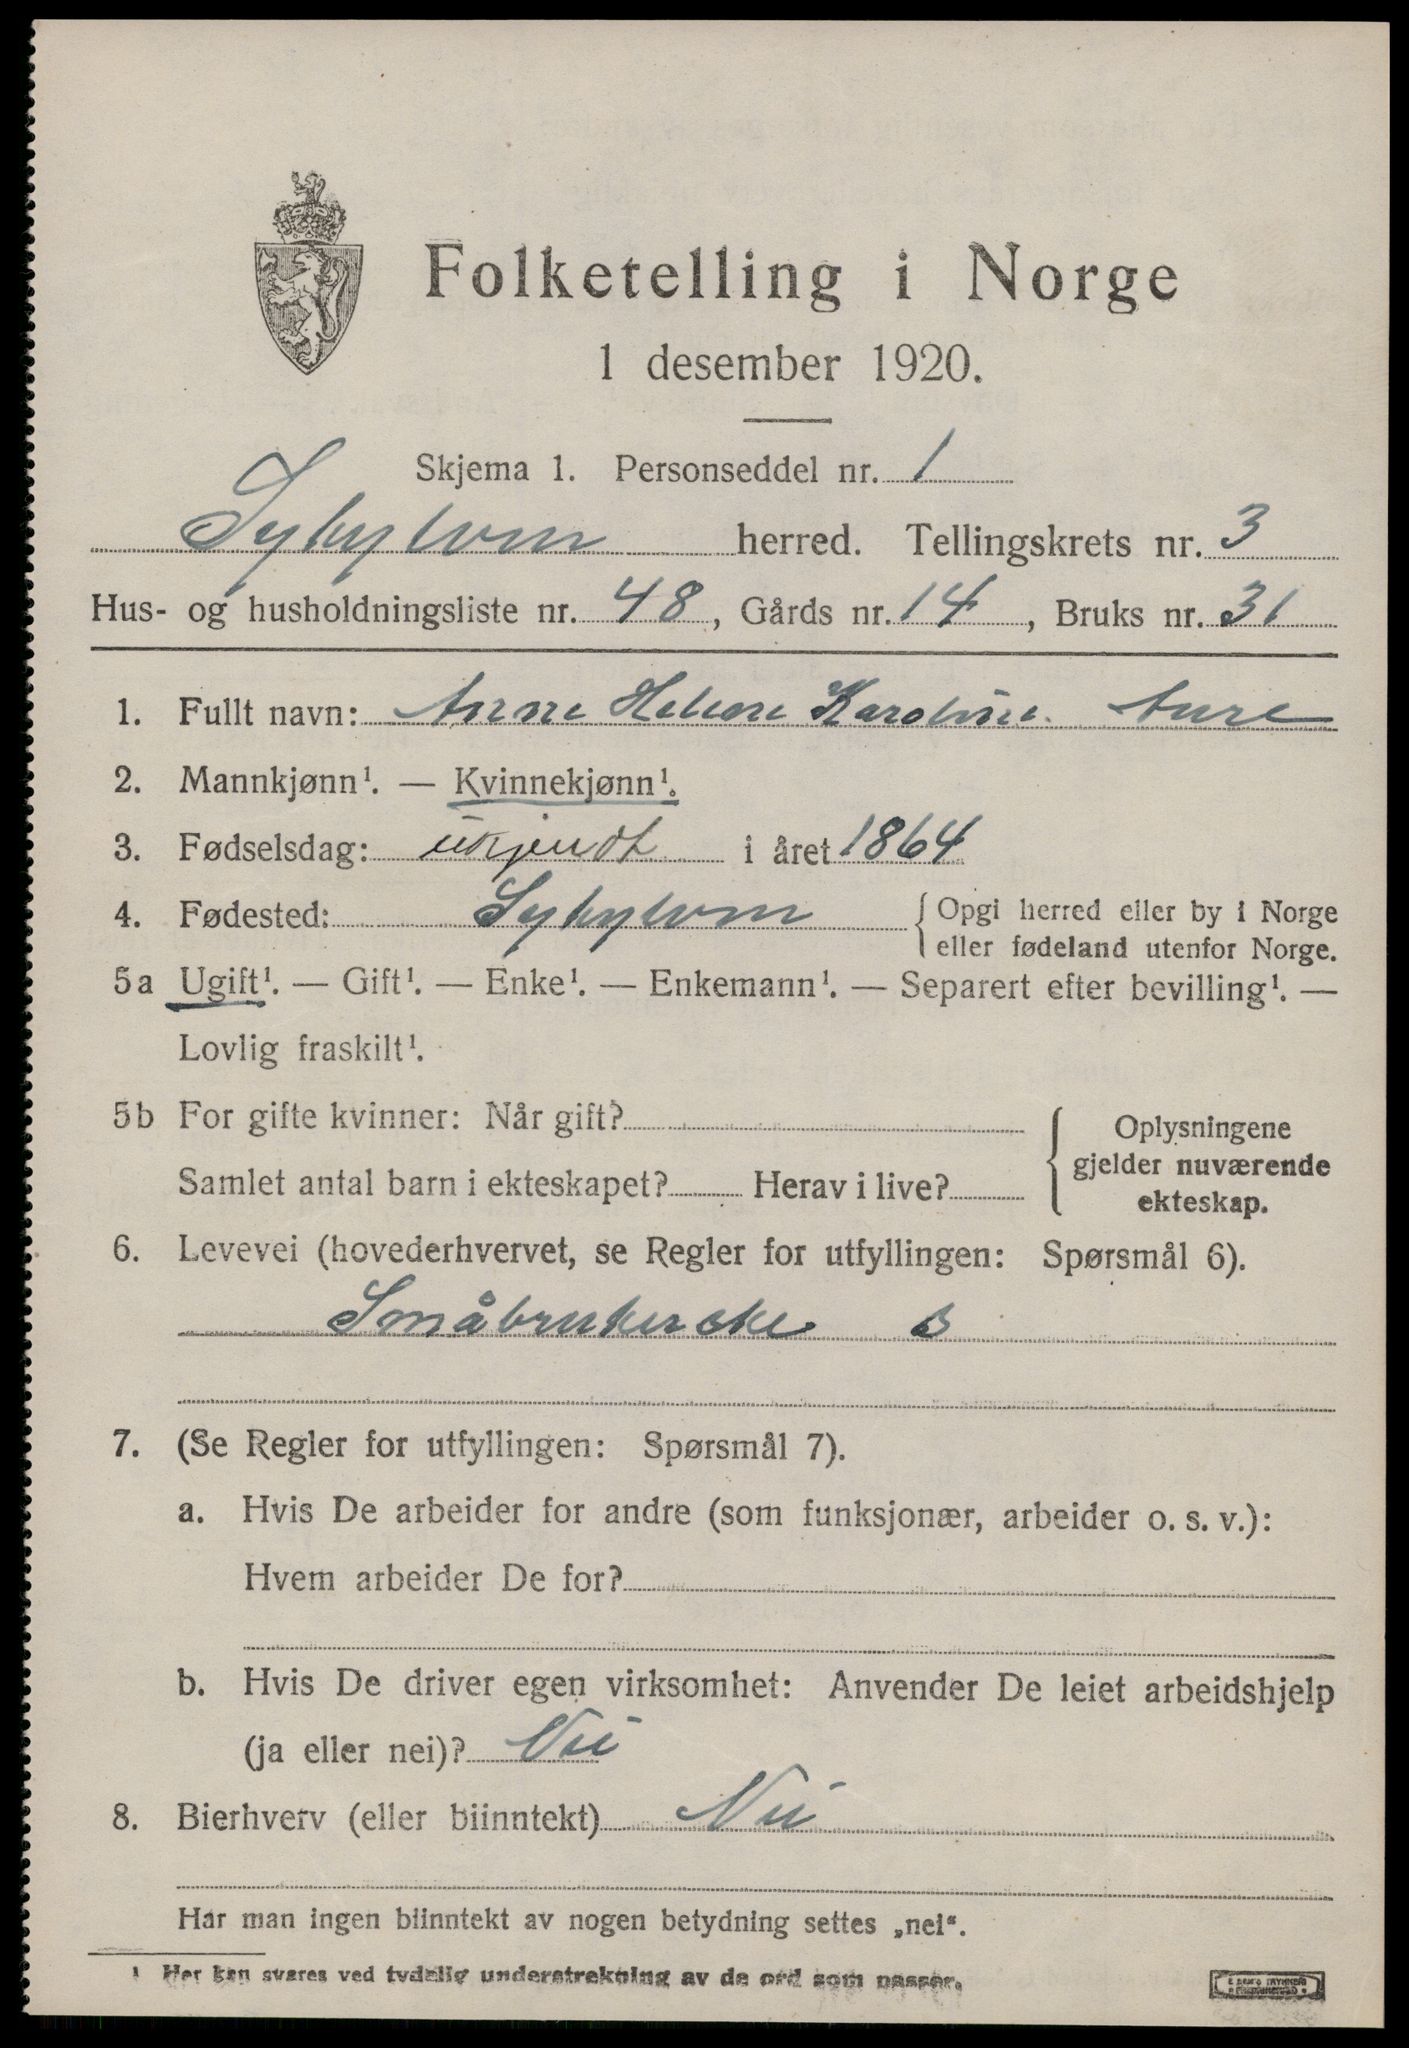 Folketelling i Norge
1 desember 1920.
Skjema 1. Personseddel nr. 1
Sykylven herred. Tellingskrets nr. 3
Hus- og husholdningsliste nr. 48, Gårds nr. 14, Bruks nr. 31
1. Fullt navn: Anne Helene Karoline Aure
2. Mannkjønn¹. — Kvinnekjønn¹.
3. Fødselsdag: ukjendt i året 1864
4. Fødested: Sykylven { Opgi herred eller by i Norge
eller fødeland utenfor Norge.
5a Ugift¹. — Gift¹. — Enke¹. — Enkemann¹. — Separert efter bevilling¹. —
Lovlig fraskilt¹.
5b For gifte kvinner: Når gift? { Oplysningene
gjelder nuværende
ekteskap.
Samlet antal barn i ekteskapet? Herav i live?
6. Levevei (hovederhvervet, se Regler for utfyllingen: Spørsmål 6).
Småbrukerske B
7. (Se Regler for utfyllingen: Spørsmål 7).
a. Hvis De arbeider for andre (som funksjonær, arbeider o. s. v.):
Hvem arbeider De for?
b. Hvis De driver egen virksomhet: Anvender De leiet arbeidshjelp
(ja eller nei)? Nei
8. Bierhverv (eller biinntekt) Nei
Har man ingen biinntekt av nogen betydning settes „nei“.
1 Her kan svares ved tydelig understrekning av de ord som passer.